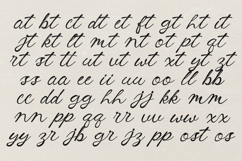 at bt ct dt et ft gt ht it
jt kt lt mt nt ot pt qt
rt st tt ut vt wt xt yt zt
ss aa ee ii uu oo ll bb
cc dd gg hh jj kk mm
nn pp qq rr vv ww xx
yy zz jb gr jz pp ost os